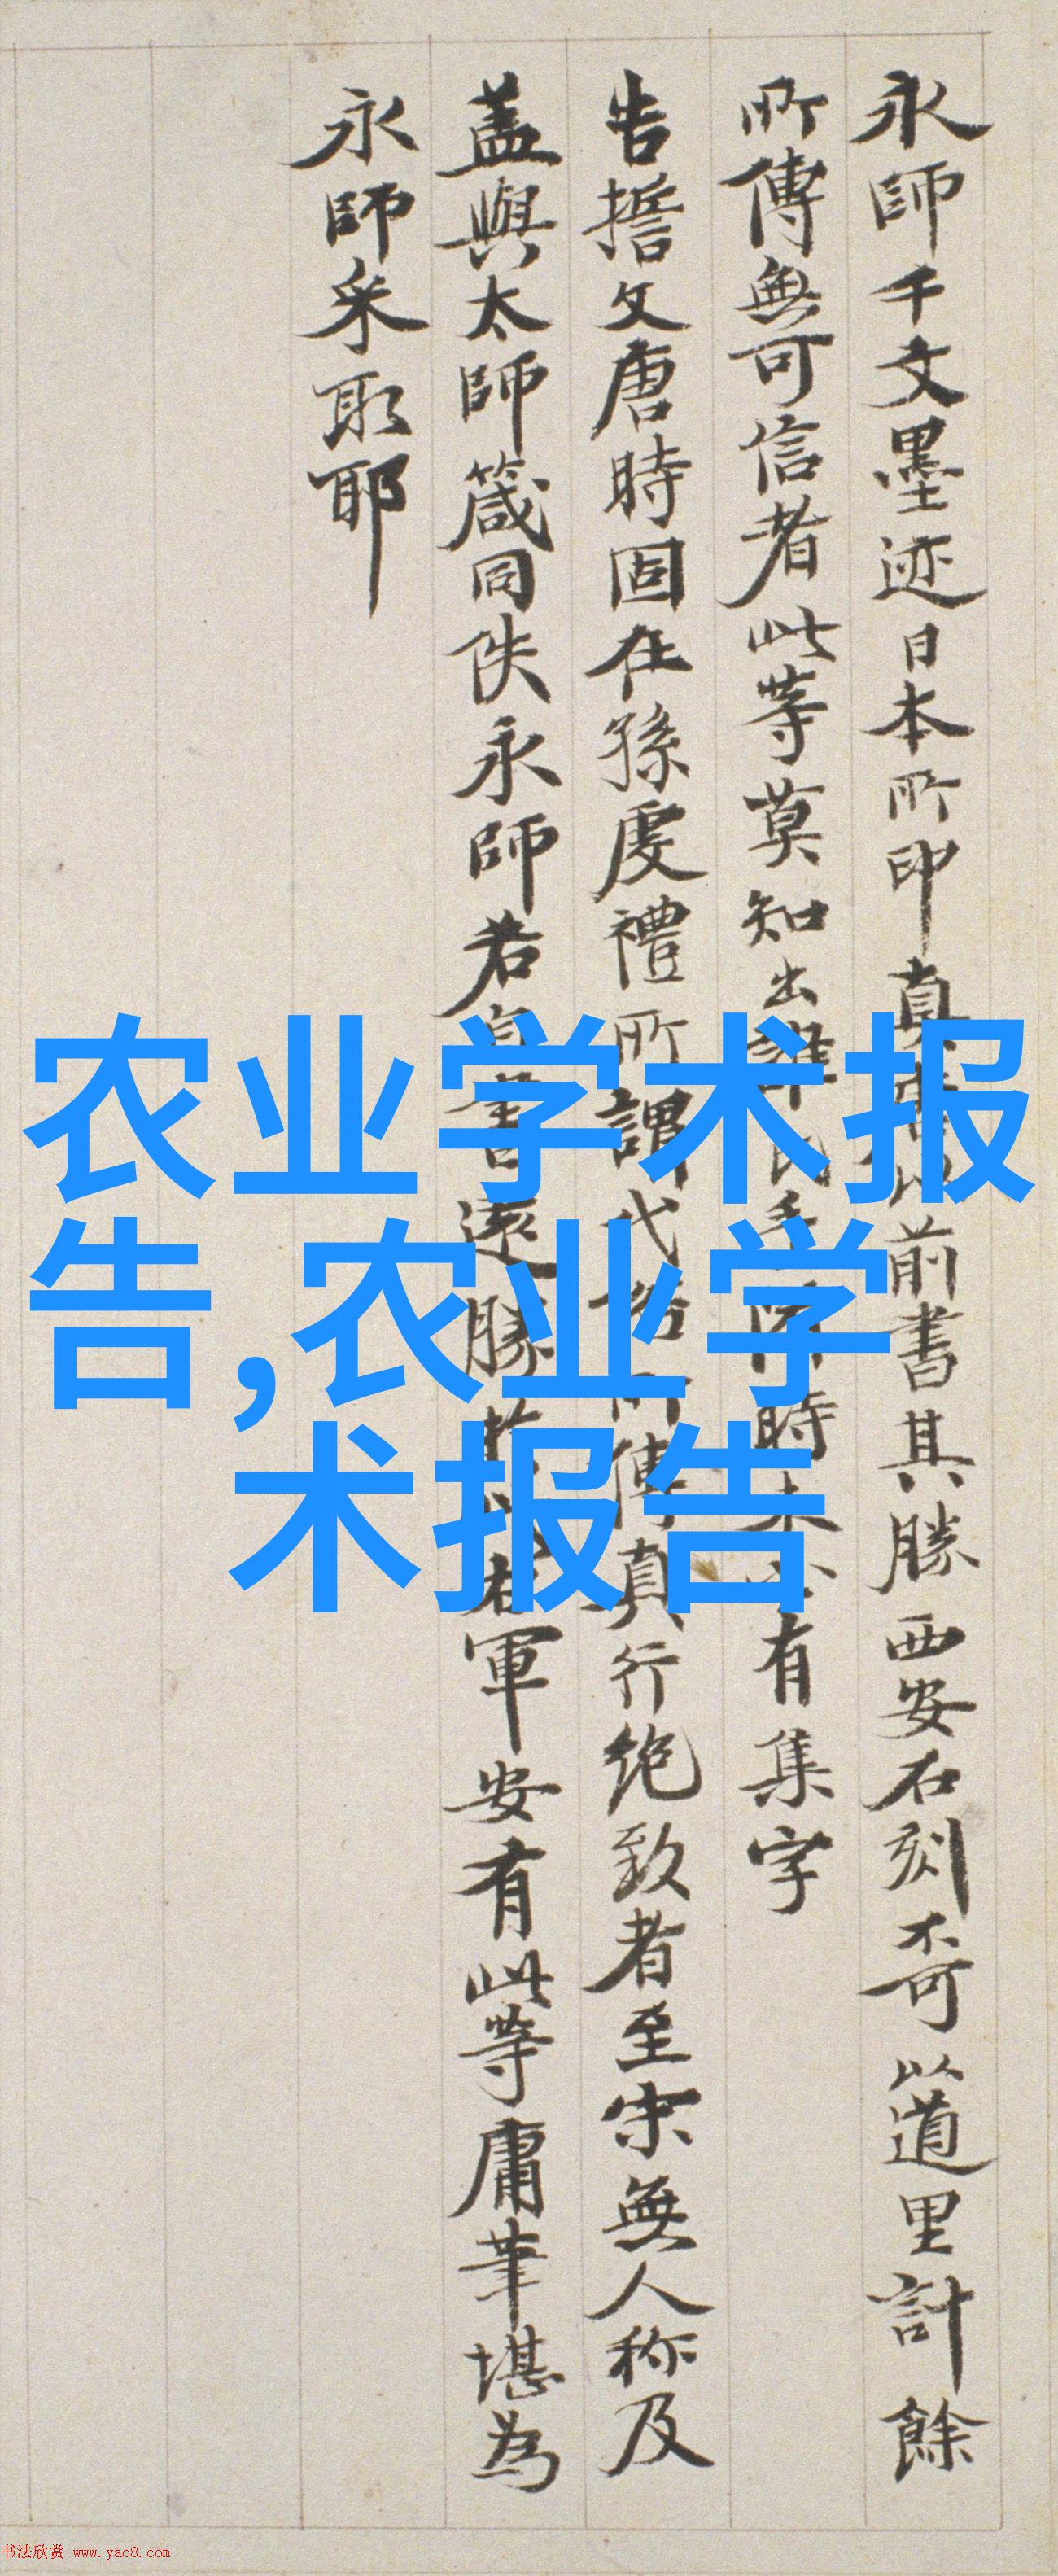 永師千文墨迹日本所印真唐以前書其勝西安石刻不可以道里計餘
所傳無可信者此等莫知出誰氏手時未必有集字
告誓文唐時固在孫虔禮所謂代俗所傳真行絶致者至宋無人称及
蓋與太師箴同佚永師若自書遠勝於右軍安有此等庸筆堪為
永師采取耶
农业学术报
告,农业学
术报告
书法欣赏 www.yac8.com